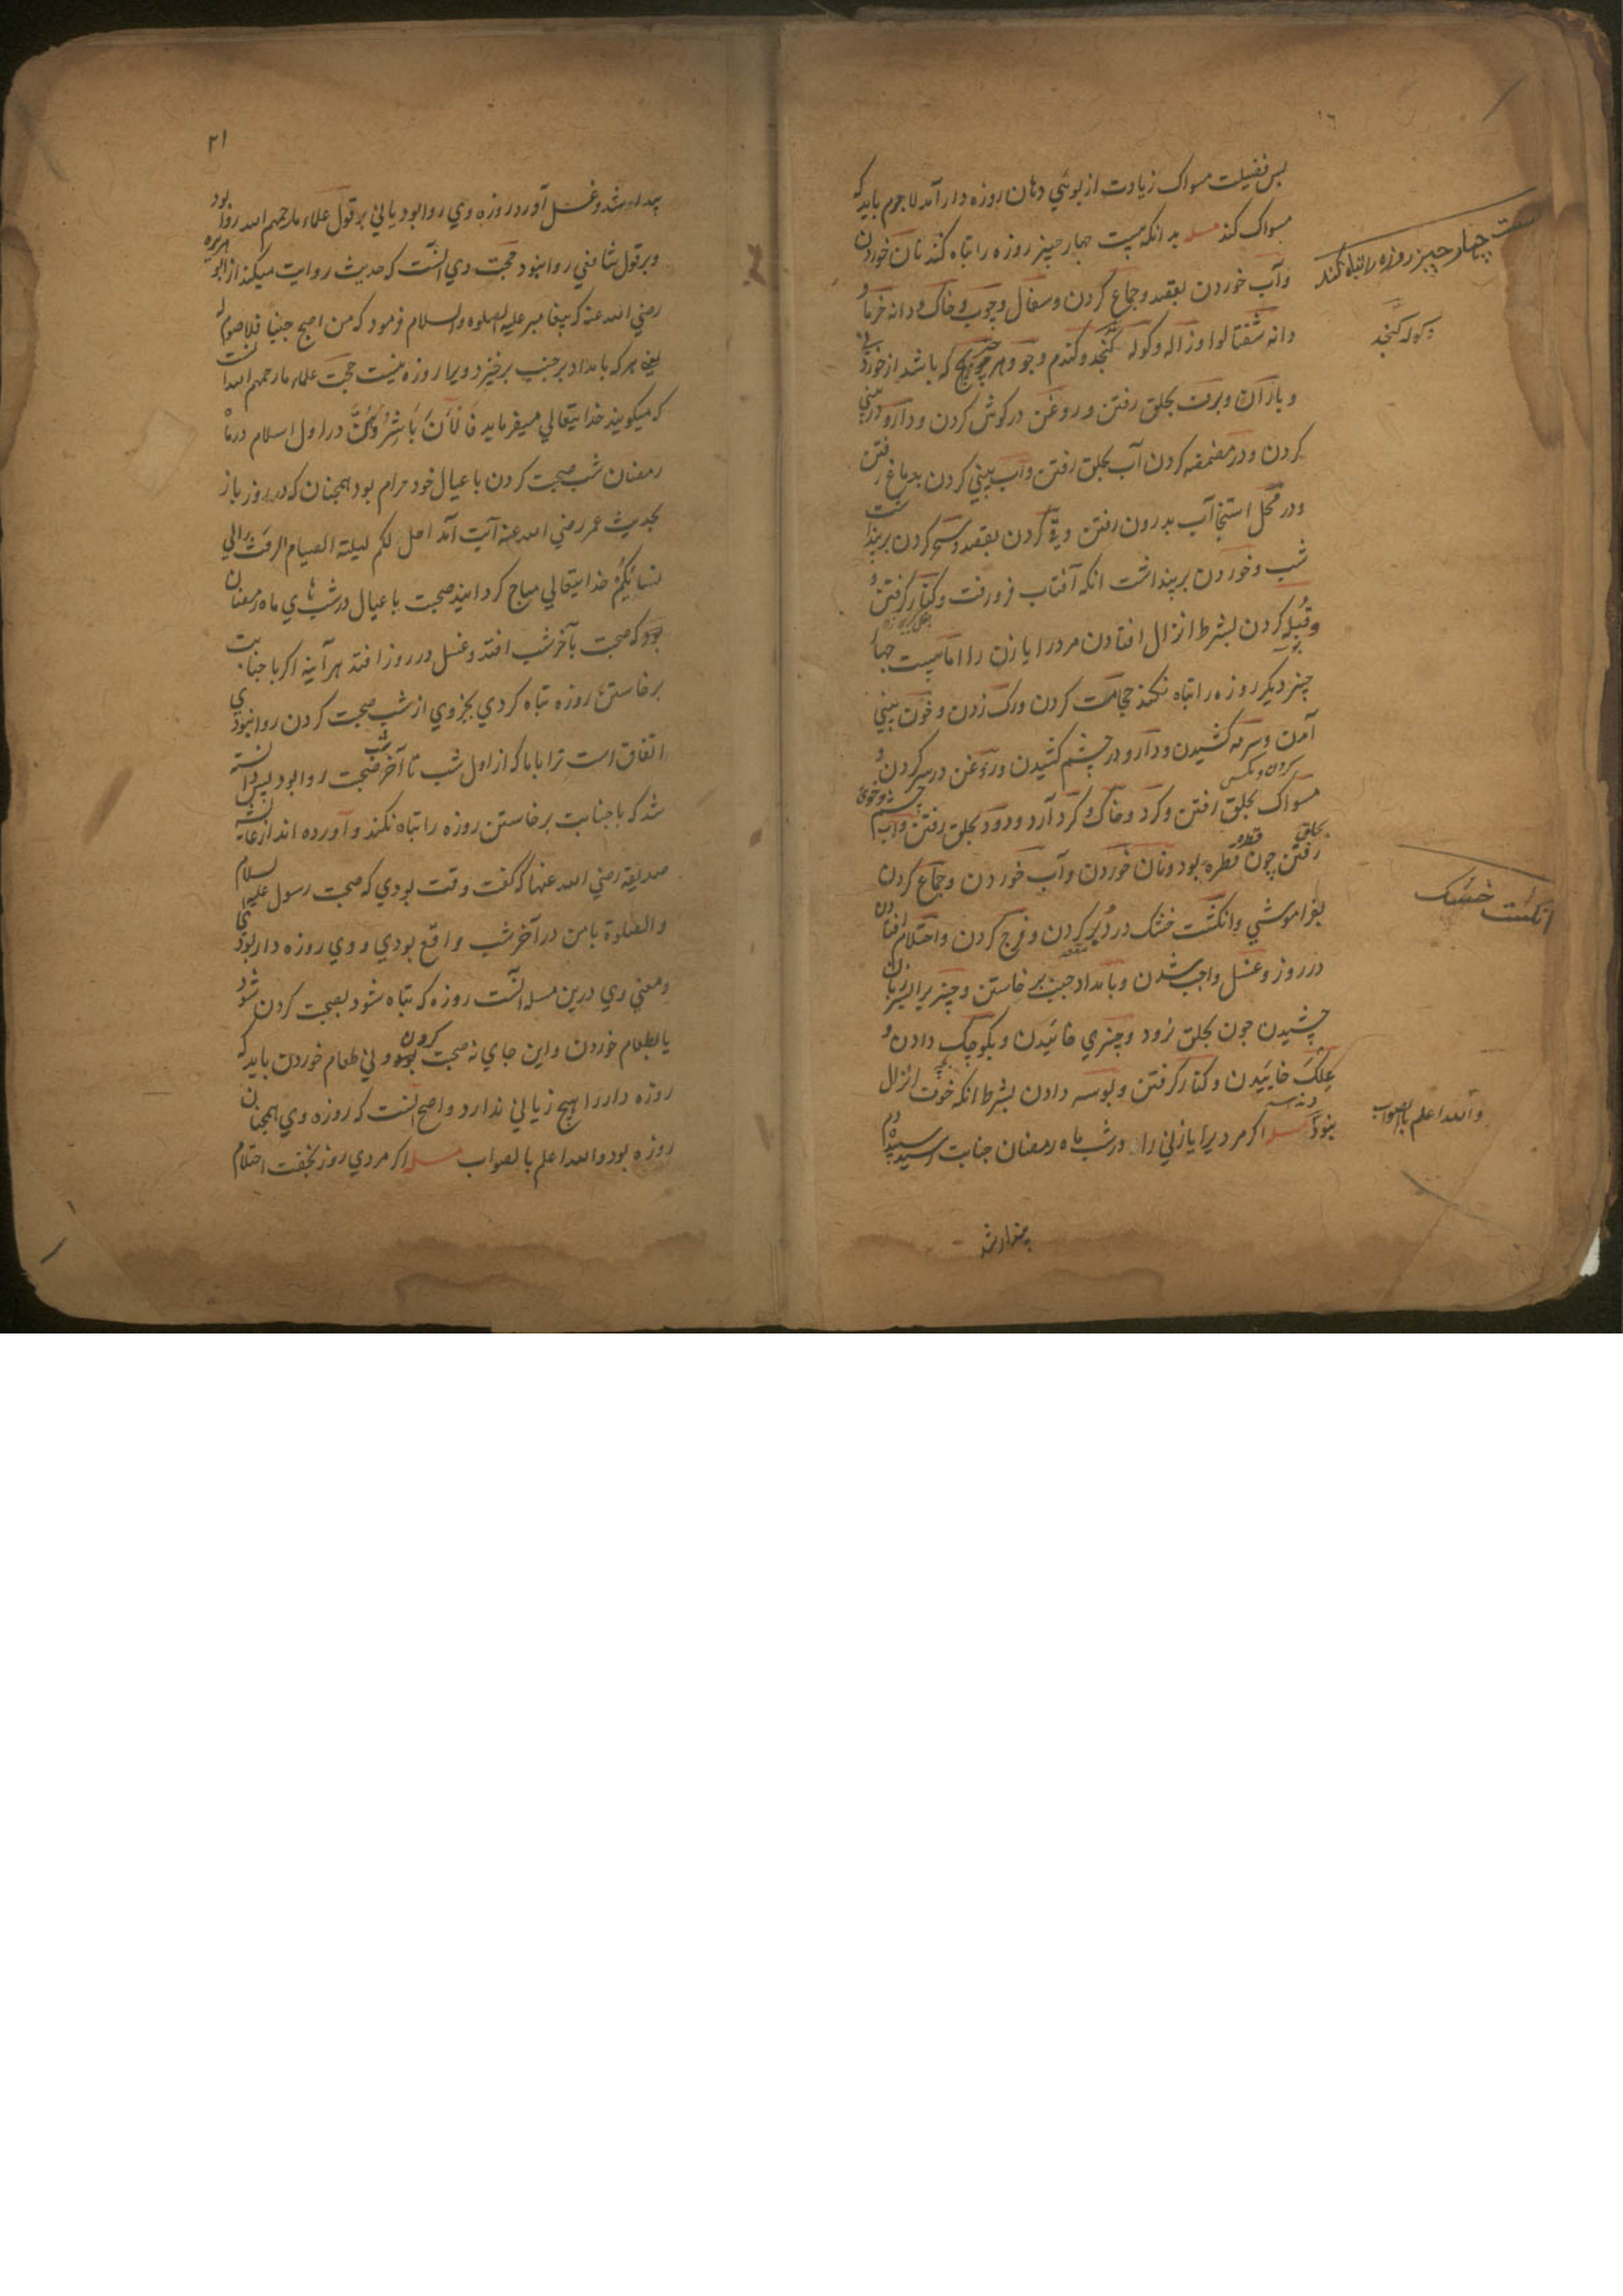 پس فضیلت مسواک زیادت از بوئي دهان روزه دار آمد لاجرم باید که
مسواک کند مسله بدانکه بیست چهار چیز روزه را تباه کند نان خوردن
وآب خوردن بقصد وجماع کردن وسفال وچوب وخاک ودانه خرما و
دانه شفتالو اوژاله وکوله کنجد وکندم وجو وهر چیزیکه باشد از خوردني
وباران وبرف بحلق رفتن وروغن درکوش کردن ودارو در بیني
کردن ودر مضمضه کردن آب بحلق رفتن وآب ببیني کردن بدماغ رفتن
ودر محل استنجا آب بدرون رفتن وقي کردن بقصد وسحر کردن برپنداشت
شب وخوردن برپنداشت انکه آفتاب فرو رفت وکنار کرفتن و
وقبله کردن بشرط انزال افتادن مرد را یا زن را اما بیست چهار
چیز دیکر روزه را تباه نکند حجامت کردن ورک زدن وخون بیني
آمدن وسرمه کشیدن ودارو در چشم کشیدن وروغن در سر کردن و
مسواک کردن ومکس بحلق رفتن وکرد وخاک وکرد آرد ودود بحلق رفتن وآب چشم وخوي
بحلق رفتن چون قطره بود ونان خوردن وآب خوردن وجماع کردن
بفراموشي وانکشت خشک در دبر کردن وفرج کردن واحتلام افتادن
در روز وغسل واجب شدن وبامداد جنب برخاستن وچیزیرا بسر زبان
چشیدن چون بحلق نرود وچیزي خائیدن وبکوچک دادن و
علک خاییدن وکنار کرفتن وبوسه دادن بشرط انکه خوف انزال
نبود مسله اکر مردیرا یا زني را در شب ماه رمضان جنابت رسید سپیده دم
بیدار شد
بیست چهار چیز روزه را تباه کند
کوله کنجد
انکشت خشک
والله اعلم بالصواب
۲۱
بیدار شد وغسل آورد روزه وي روا بود یا ني بر قول علماء ما رحمهم الله روا بود
وبر قول شافعي روا نبود حجت وي آنست که حدیث روایت میکند از ابو هریره
رضي الله عنه که پیغامبر علیه الصلوة والسلام فرمود که من اصبح جنبا فلا صوم له
یعني هر که بامداد بر جنب برخیزد ویرا روزه نیست حجت علماء ما رحمهم الله آنست
که میکویند خدایتعالي میفرماید فالآن باشروهن در اول اسلام در ماه
رمضان شب صحبت کردن با عیال خود حرام بود همچنان که در روز باز
بحدیث عمر رضي الله عنه آیت آمد احل لکم لیلة الصیام الرفث الي
نسائکم خدایتعالي مباح کردانید صحبت با عیال در شب هاي ماه رمضان
بود که صحبت بآخر شب افتد وغسل در روز افتد هر آینه اکر با جنابت
برخاستن روزه تباه کردي بجزوي از شب صحبت کردن روا نبودي
اتفاق است ترا با ما که از اول شب تا آخر شب صحبت روا بود پس دانسته
شد که با جنابت برخاستن روزه را تباه نکند وآورده اند از عایشه
صدیقه رضي الله عنها که کفت وقت بودي که صحبت رسول علیه السلام
والصلوة با من در آخر شب واقع بودي ووي روزه دار بودي
ومعني وي درین مسله آنست روزه که تباه شود بصحبت کردن شود
یا بطعام خوردن واین جاي نه صحبت کردن وني طعام خوردن باید که
روزه دار را هیچ زیاني ندارد واصح آنست که روزه وي همچنان
روزه بود والله اعلم بالصواب مسله اکر مردي روز بخفت احتلام